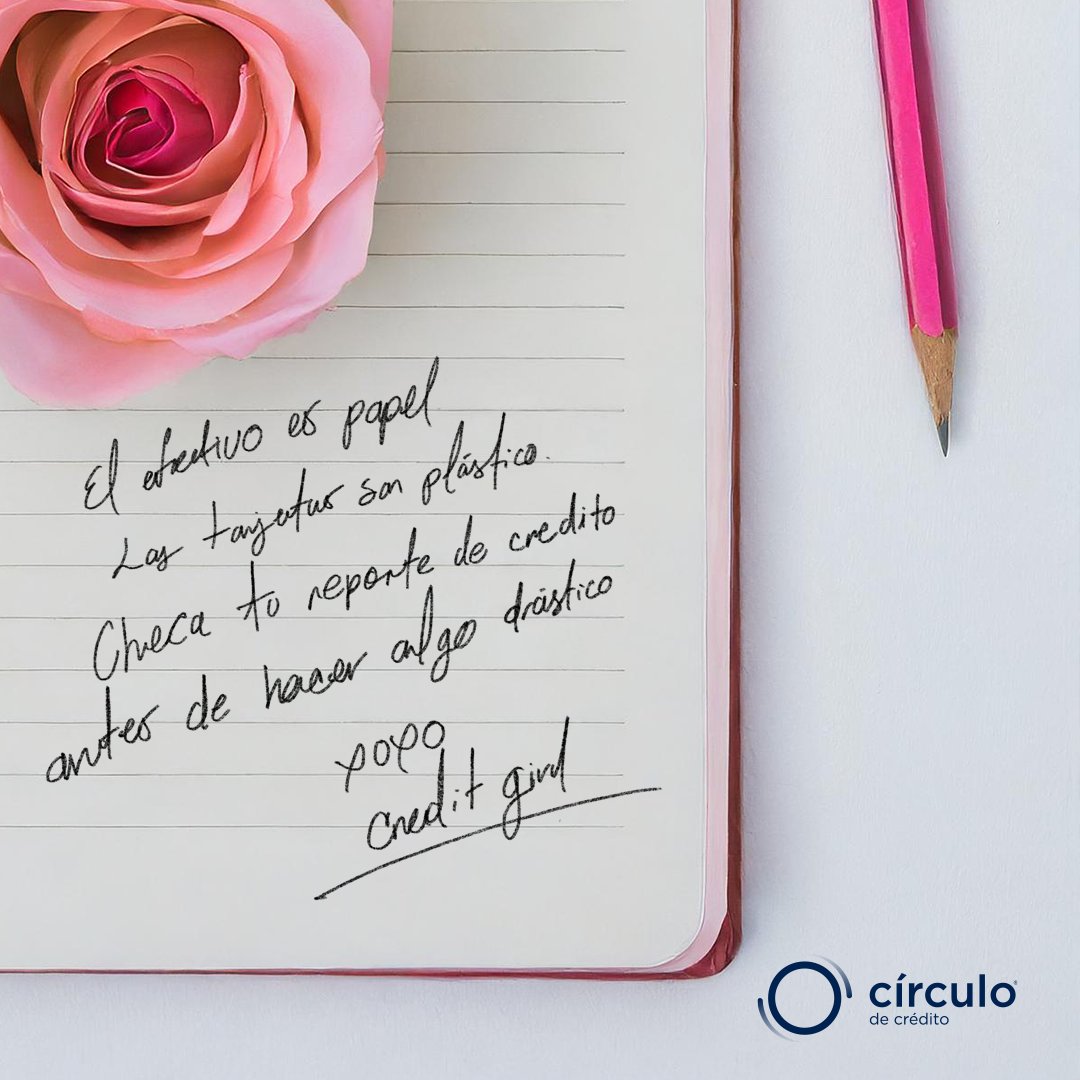 El efectivo es papel
Las tarjetas son plástico.
Checa tu reporte de credito
antes de hacer algo drástico
xoxo
Credit girl
círculo®
de crédito